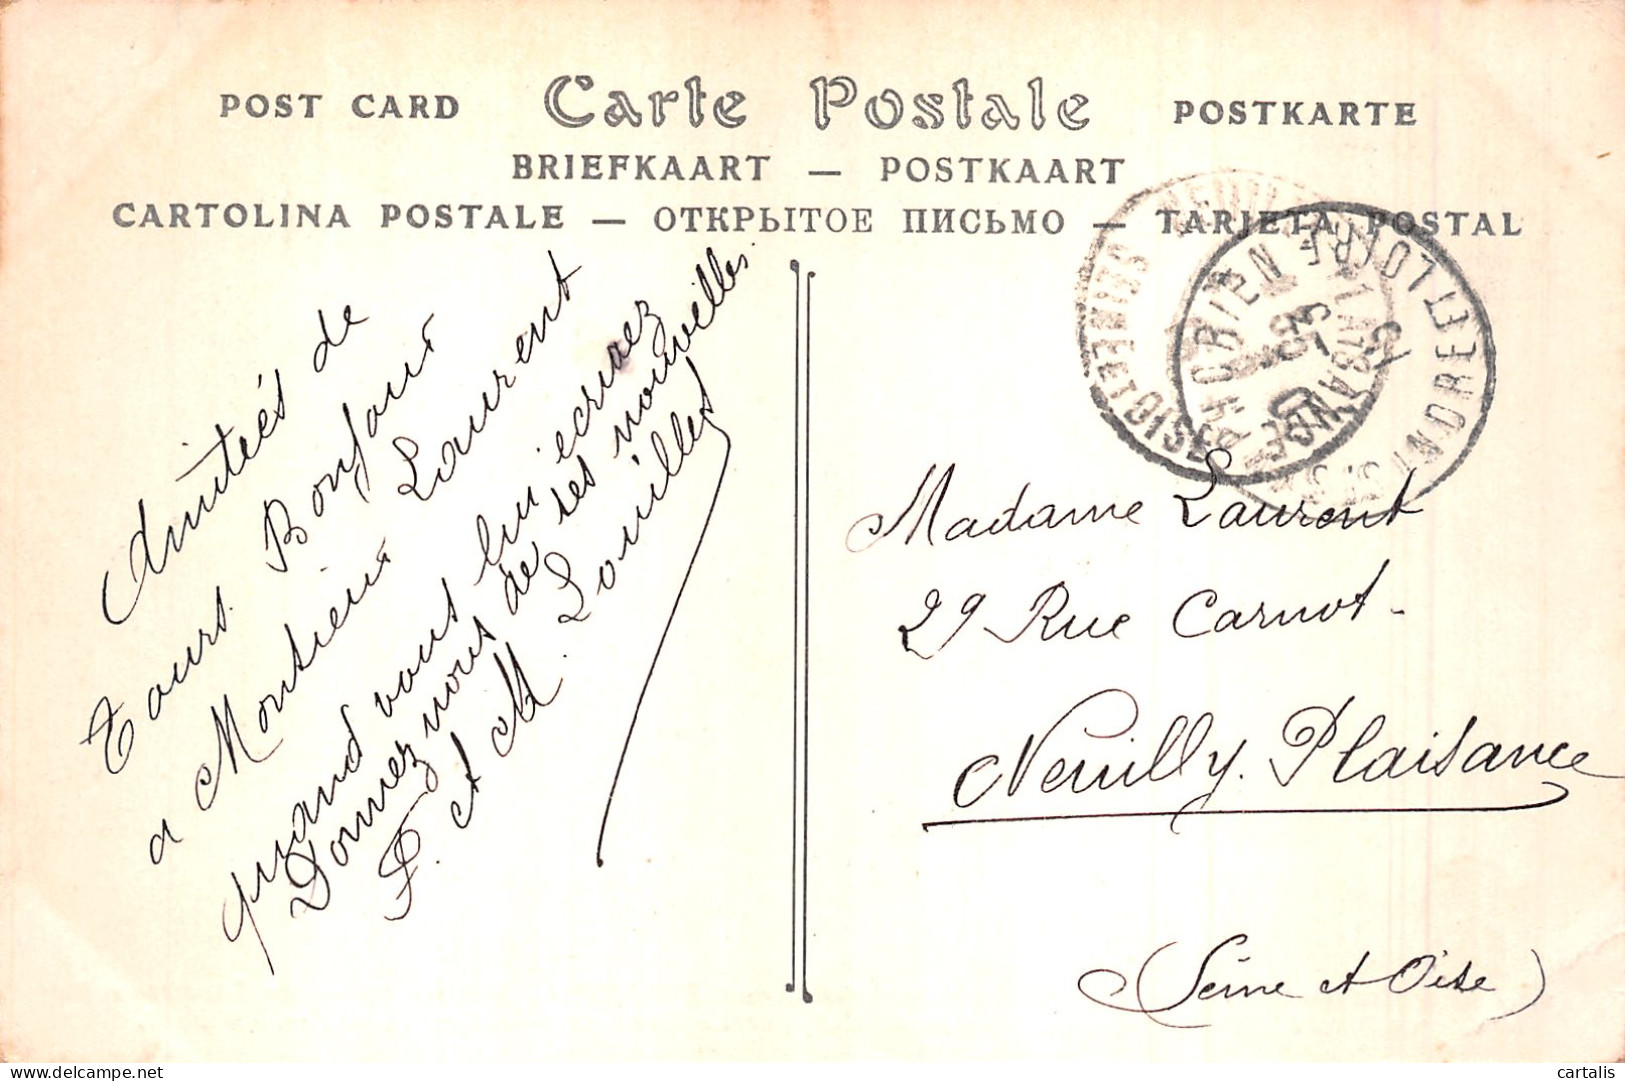 POST CARD Carte Postale POSTKARTE
BRIEFKAART — POSTKAART
CARTOLINA POSTALE — ОТКРЫТОЕ ПИСЬМО — TARJETA POSTAL
Amitiés de
Tours. Bonjour
a Monsieur Laurent
quand vous lui ecrivez
Donnez nous de ses nouvelles
P. et M. Louillet
Madame Laurent
29 Rue Carnot-
Neuilly. Plaisance
(Seine et Oise)
SEINE ET OISE
INDRE ET LOIRE
cartalis